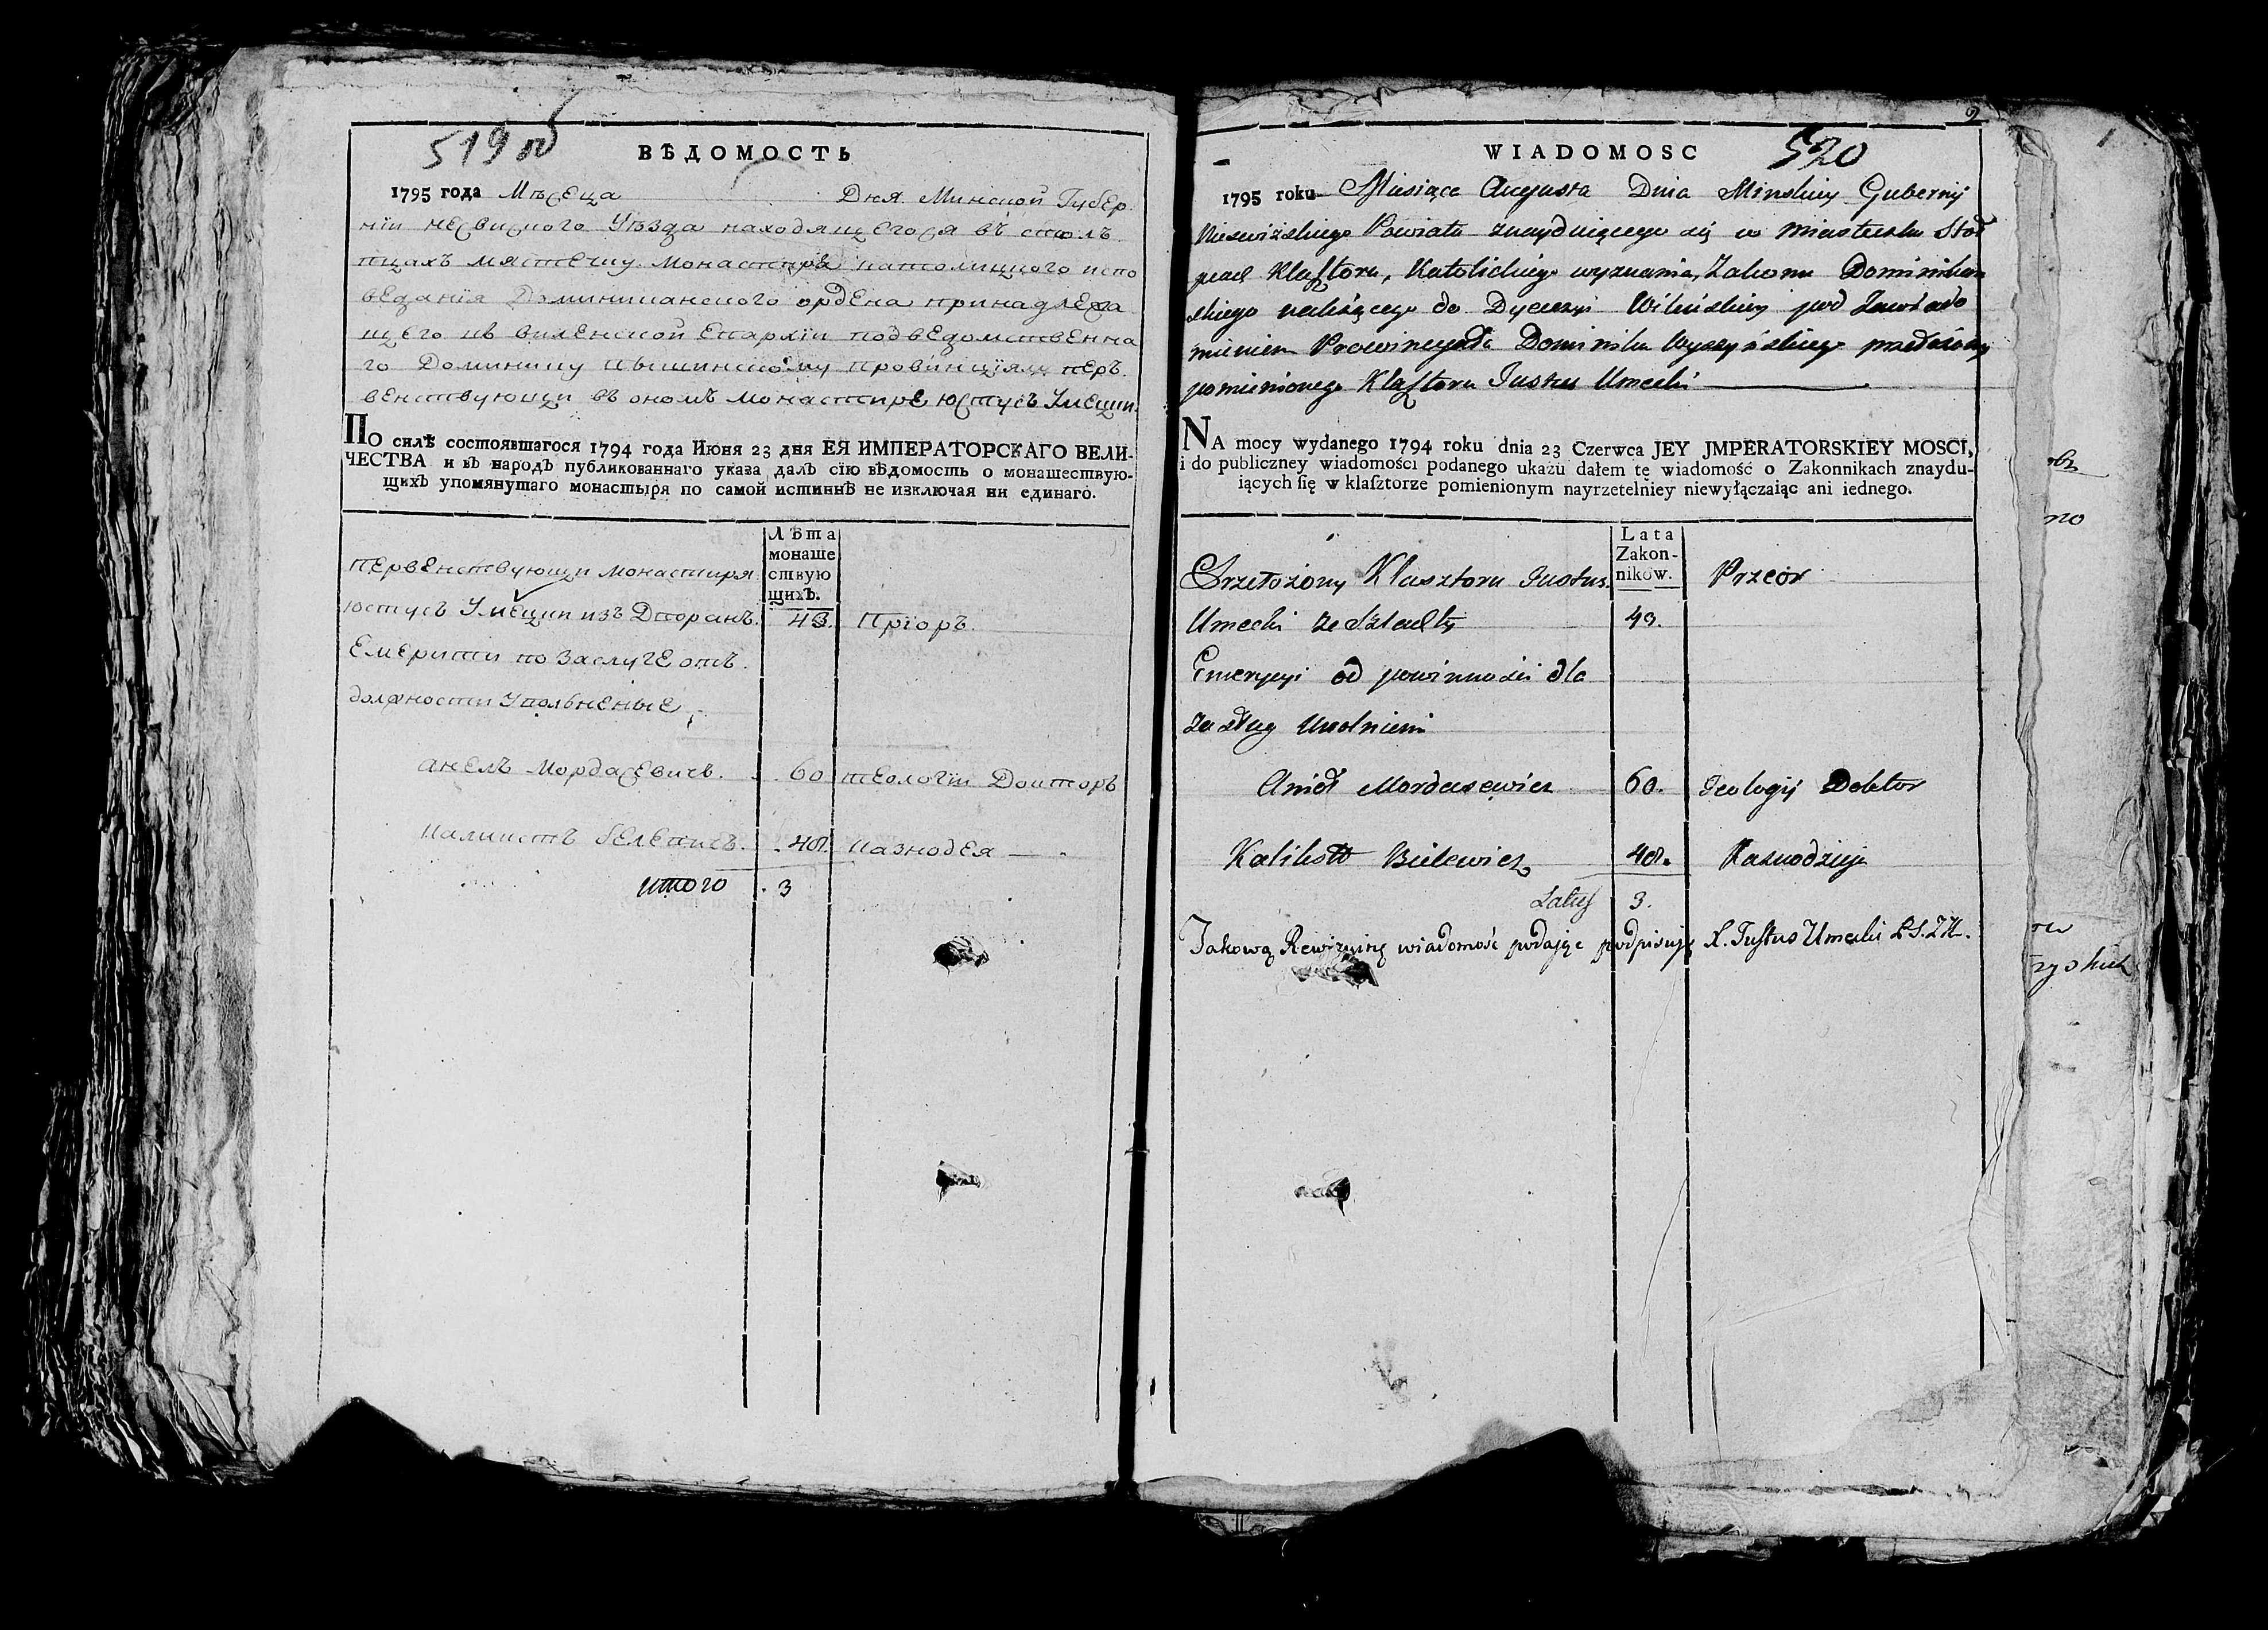 519 об
ВѢДОМОСТЬ
1795 года Мѣсеца Дня Минской Губер
нїи несвиского Уѣзда находящегося въ столъ
пцахъ мястечку монастиря католицкого испо
веданїя Доминиканского ордена принадлежа
щего къ виленской Епархїи подведомственна
го Доминику провинцїялу перъ
венствующи въ ономъ монастире Юстусъ Умецки
ПО силѣ состоявшагося 1794 года Июня 23 дня ЕЯ ИМПЕРАТОРСКАГО ВЕЛИ-
ЧЕСТВА и въ народъ публикованнаго указа далъ сїю вѣдомость о монашествую-
щихъ упомянутаго монастыря по самой истиннѣ не изключая ни единаго.
Лѣта
монаше
ствую
щихъ.
первенствующи монастиря
Юстусъ Умецки изъ Дворанъ. 43. Прїоръ.
Емерити по заслуге отъ
должности увольненые
анелъ Мордасевичъ. 60 теологїи Докторъ
Каликстъ белевичъ. 48. Казнодея
итого 3
2
WIADOMOSC
520
1795 roku Miesiąca Augusta Dnia Minskiey Gubernij
Nieswizskiego Powiatu znayduiącego się w Miasteczku Stoł
pcach Klasztoru, Katolickiego wyznania, Zakonu Dominikan
skiego należącego do Dyecezyi Wileńskiey pod Zawiado
mieniem Prowincyała Dominika Wyszyńskiego przełożony
pomienionego Klasztoru Justus Umecki
NA mocy wydanego 1794 roku dnia 23 Czerwca JEY JMPERATORSKIEY MOSCI,
i do publiczney wiadomości podanego ukazu dałem tę wiadomość o Zakonnikach znaydu-
iących się w klasztorze pomienionym nayrzetelniey niewyłączaiąc ani iednego.
Lata
Zakon-
nikow.
Przełożony Klasztoru Justus Przeor
Umecki ze Szlachty 43.
Emeryci od powinności dla
zasług uwolnieni
Anioł Mordasewicz 60. Teologij Doktor
Kalikstt Bielewicz 48. Kaznodzieja
Latus 3.
Jakową Rewizyiną wiadomość podając podpisuję X. Justus Umecki